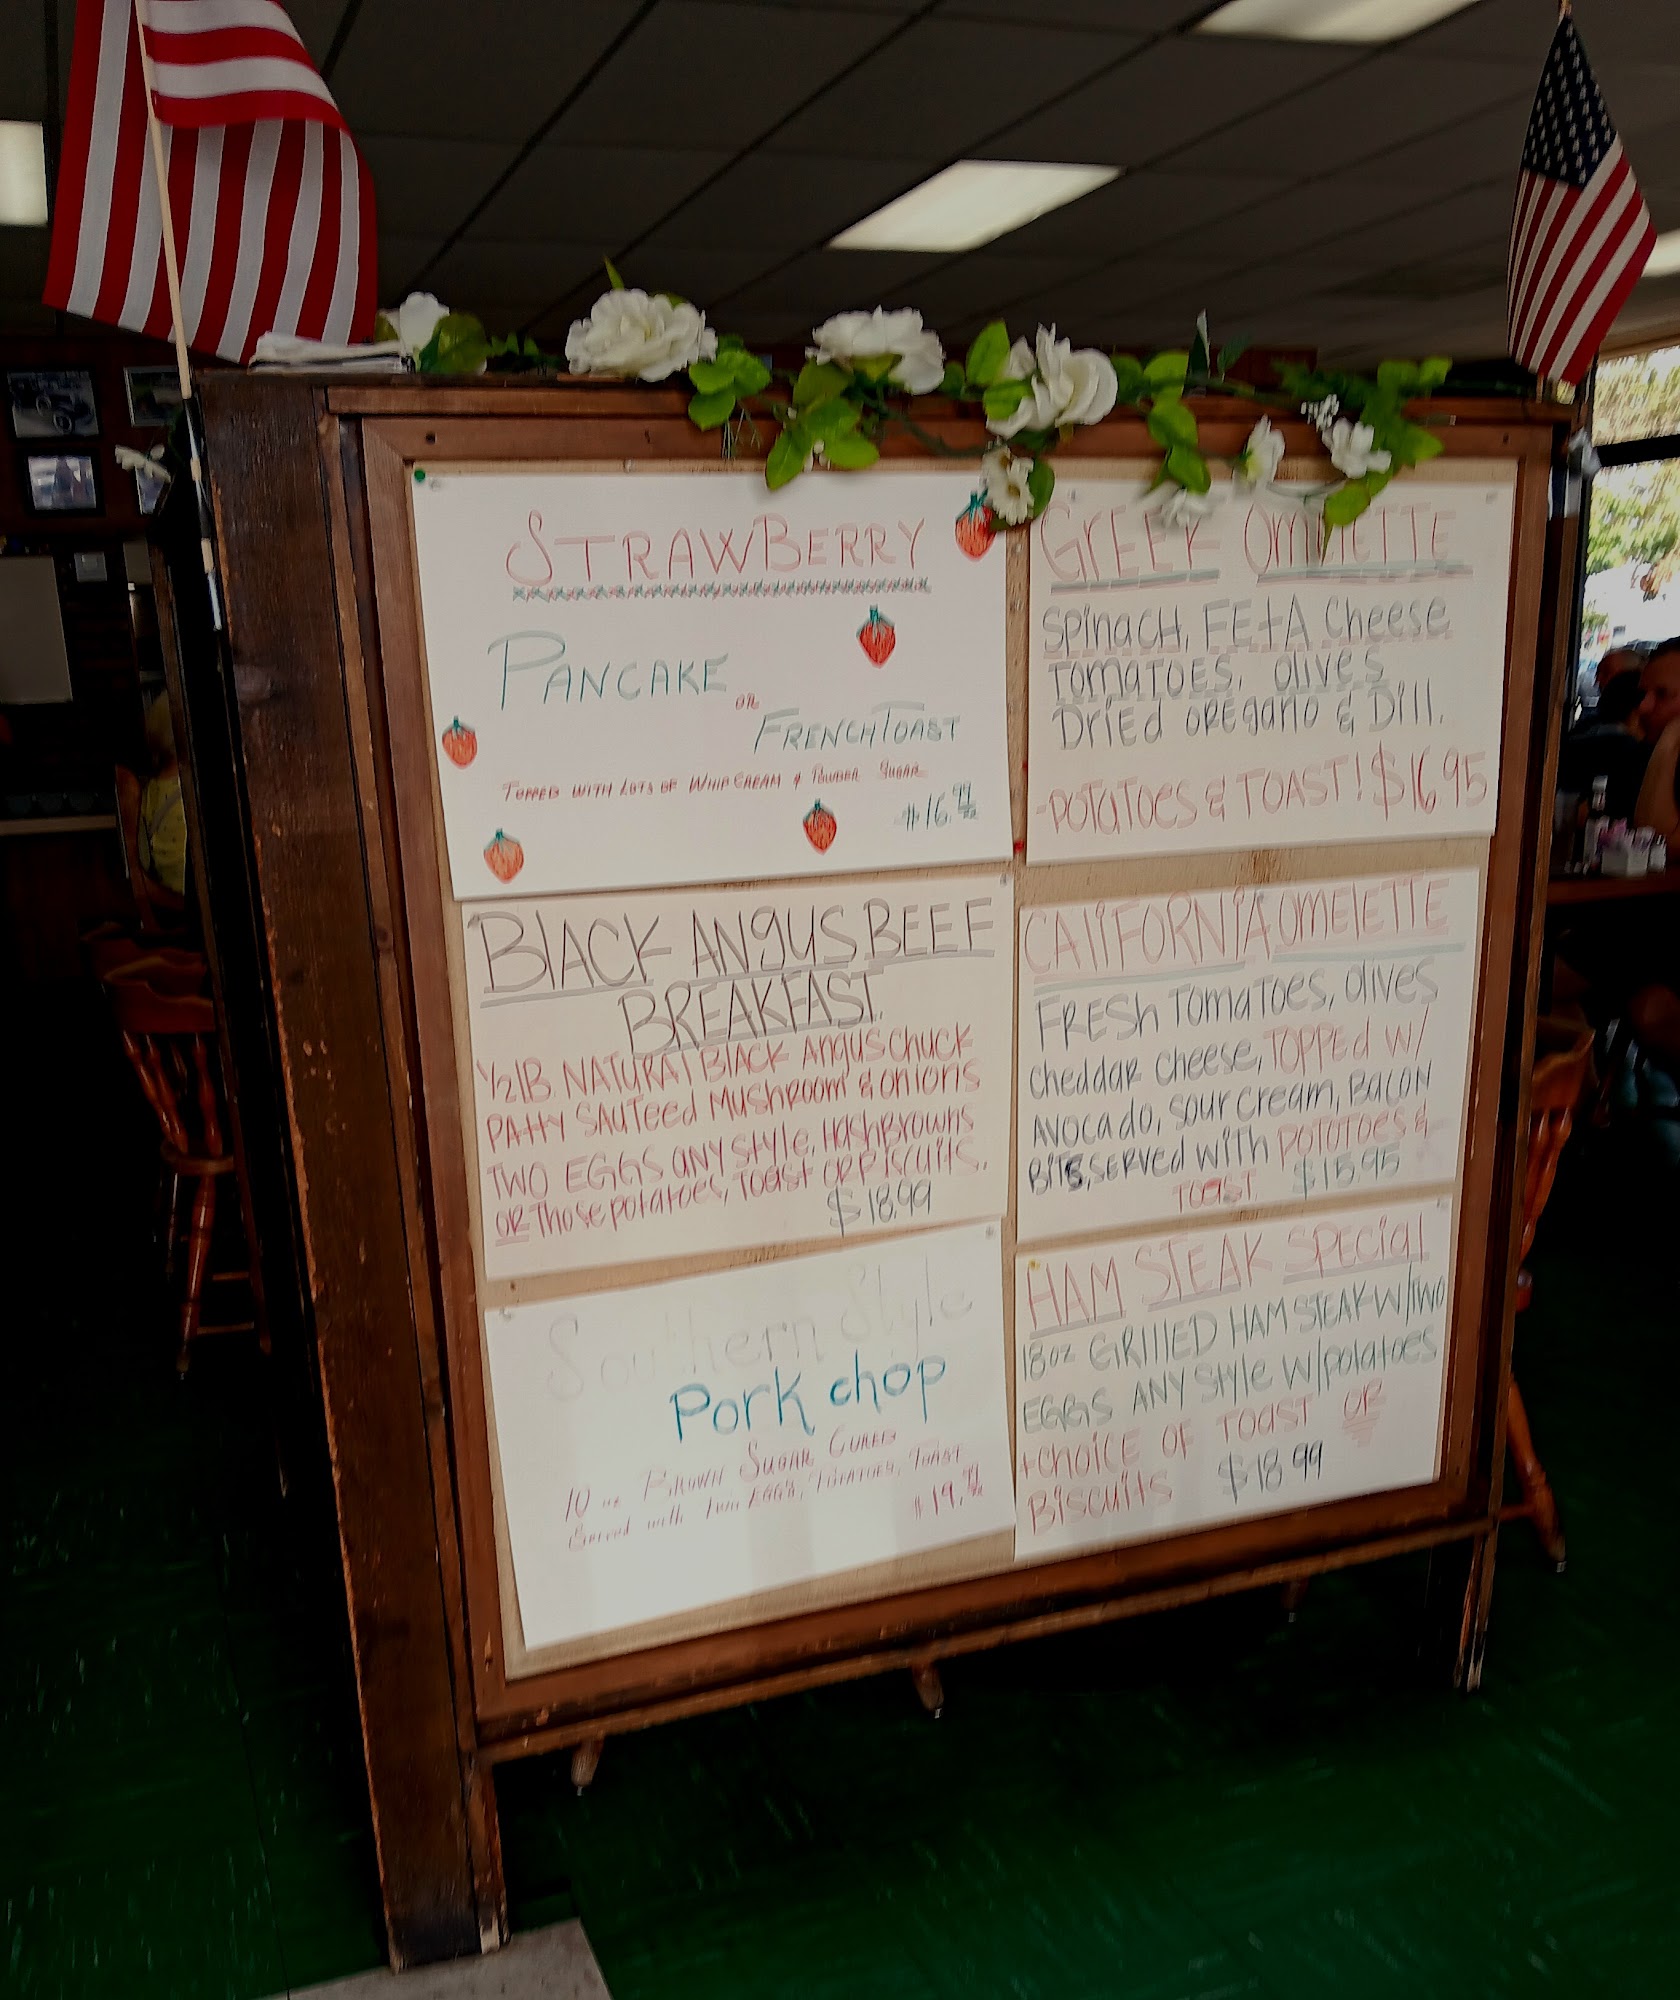 STRAWBERRY
PANCAKE
OR
FRENCH TOAST
TOPPED WITH LOTS OF WHIP CREAM & POWDER SUGAR
$16.99
GREEK OMELETTE
SPiNACH, FEtA CHeese
TOMATOES, OliVES
DRiEd OREgANO & Dill.
-POTATOES & TOAST! $16 95
BlACK ANgUS BEEF
BREAKFAST.
1/2 lB. NATURAl BlACK ANgUS CHUCK
PAttY SAUTeed MUSHROOM & ONiONS
TWO EGGS ANY StYle, HASHBROWNS
OR THOSE POtAtOES, TOAST OR BiSCUitS.
$18.99
CAliFORNiA OMElETTE
FRESh TOMATOES, OliVES
CHeddAR CHeeSe, TOPPEd W/
AVOCAdO, SOUR CREAM, BACON
BiTS, SERVEd WiTH POTATOES &
TOAST. $15.95
Southern Style
Pork chop
10 oz BROWN SUGAR CURED
Served with two EGGS, POTATOES, TOAST
$19.99
HAM STEAK SPECiAl
18oz GRillED HAM STEAK W/TWO
EGGS ANY StYle W/POtAtOES
+CHOiCE OF TOAST OR
BiSCUitS $18 99